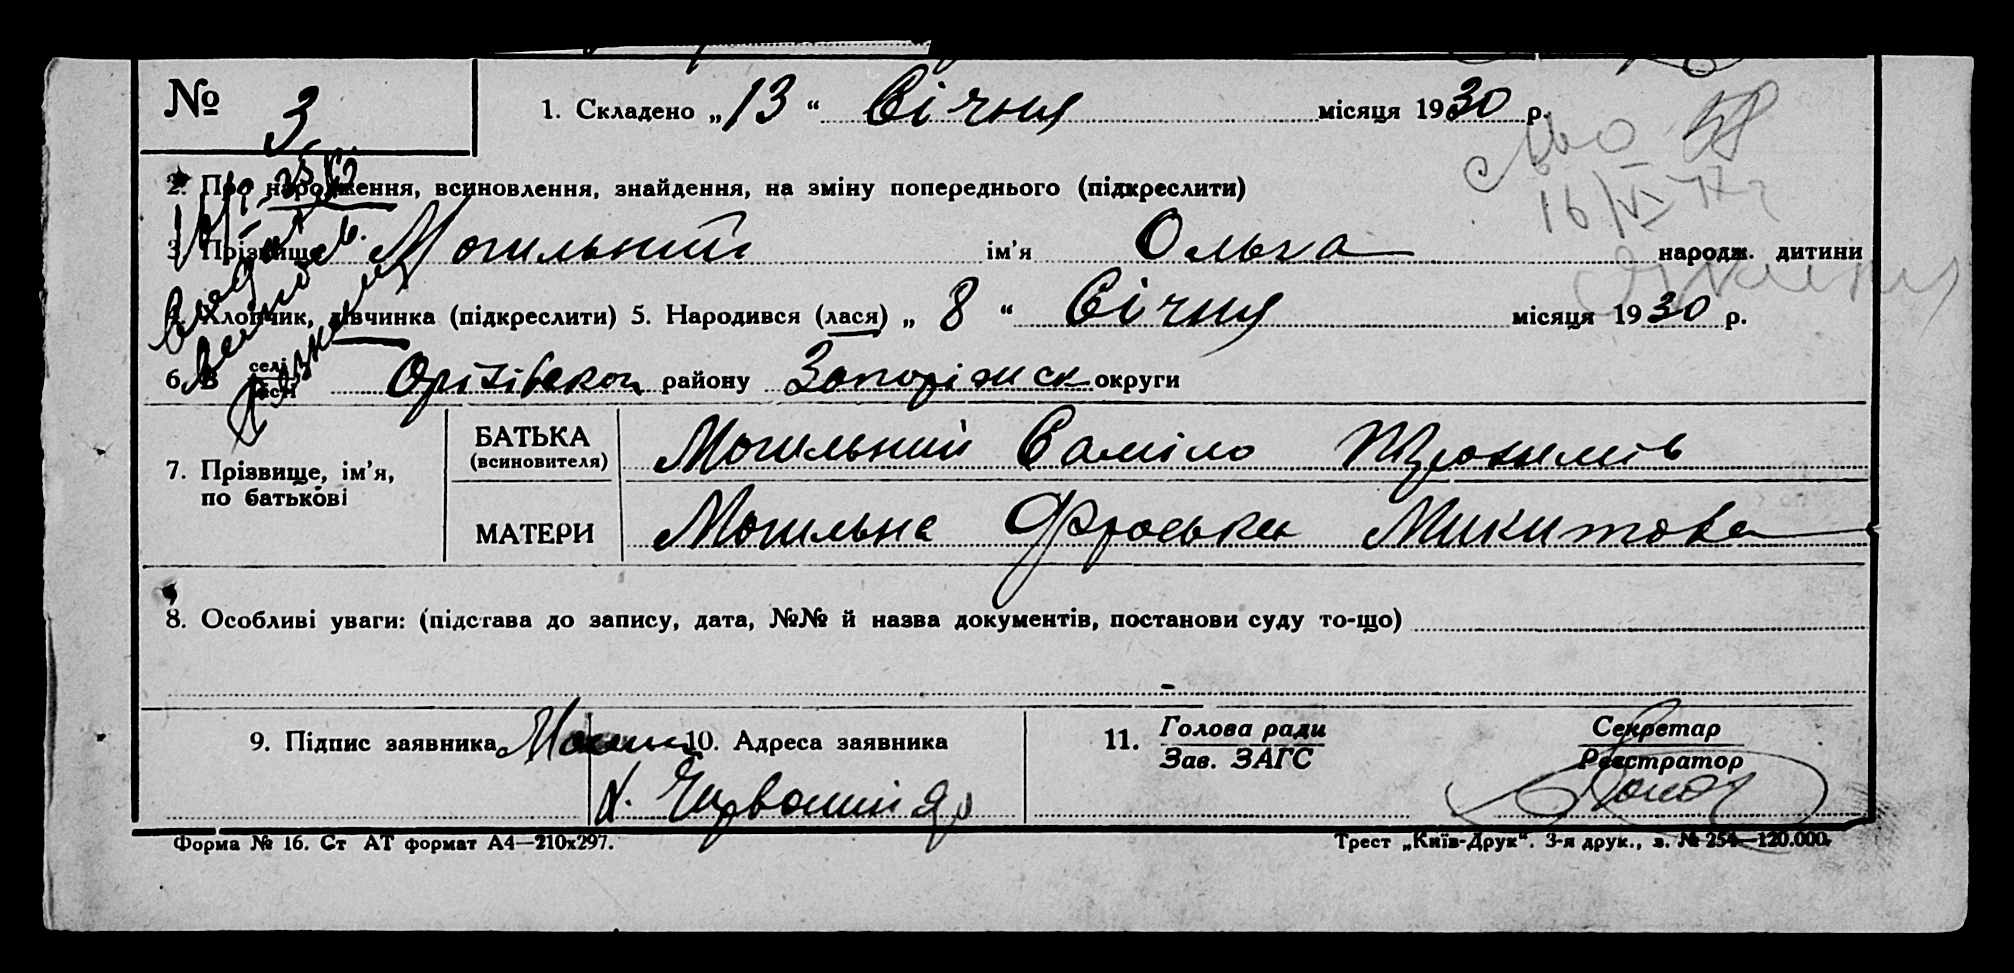 № 3
1. Складено „13“ Січня місяця 1930 р.
2. Про народження, всиновлення, знайдення, на зміну попереднього (підкреслити)
3. Прізвище Могильний ім’я Ольга народж. дитини
4. Хлопчик, дівчинка (підкреслити) 5. Народився (лася) „8“ Січня місяця 1930 р.
6. В селі Оріхівськоц району Запоріжск округи
місті
7. Прізвище, ім’я, по батькові
БАТЬКА (всиновителя) Могильний Саміло
МАТЕРИ Могильна Фроська Микитова
8. Особливі уваги: (підстава до запису, дата, №№ й назва документів, постанови суду то-що)
9. Підпис заявника
10. Адреса заявника
11. Голова ради Секретар
Зав. ЗАГС Реєстратор
Форма № 16. Ст АТ формат А4—210х297.
Трест „Київ-Друк“. 3-я друк., з. № 254—120.000.